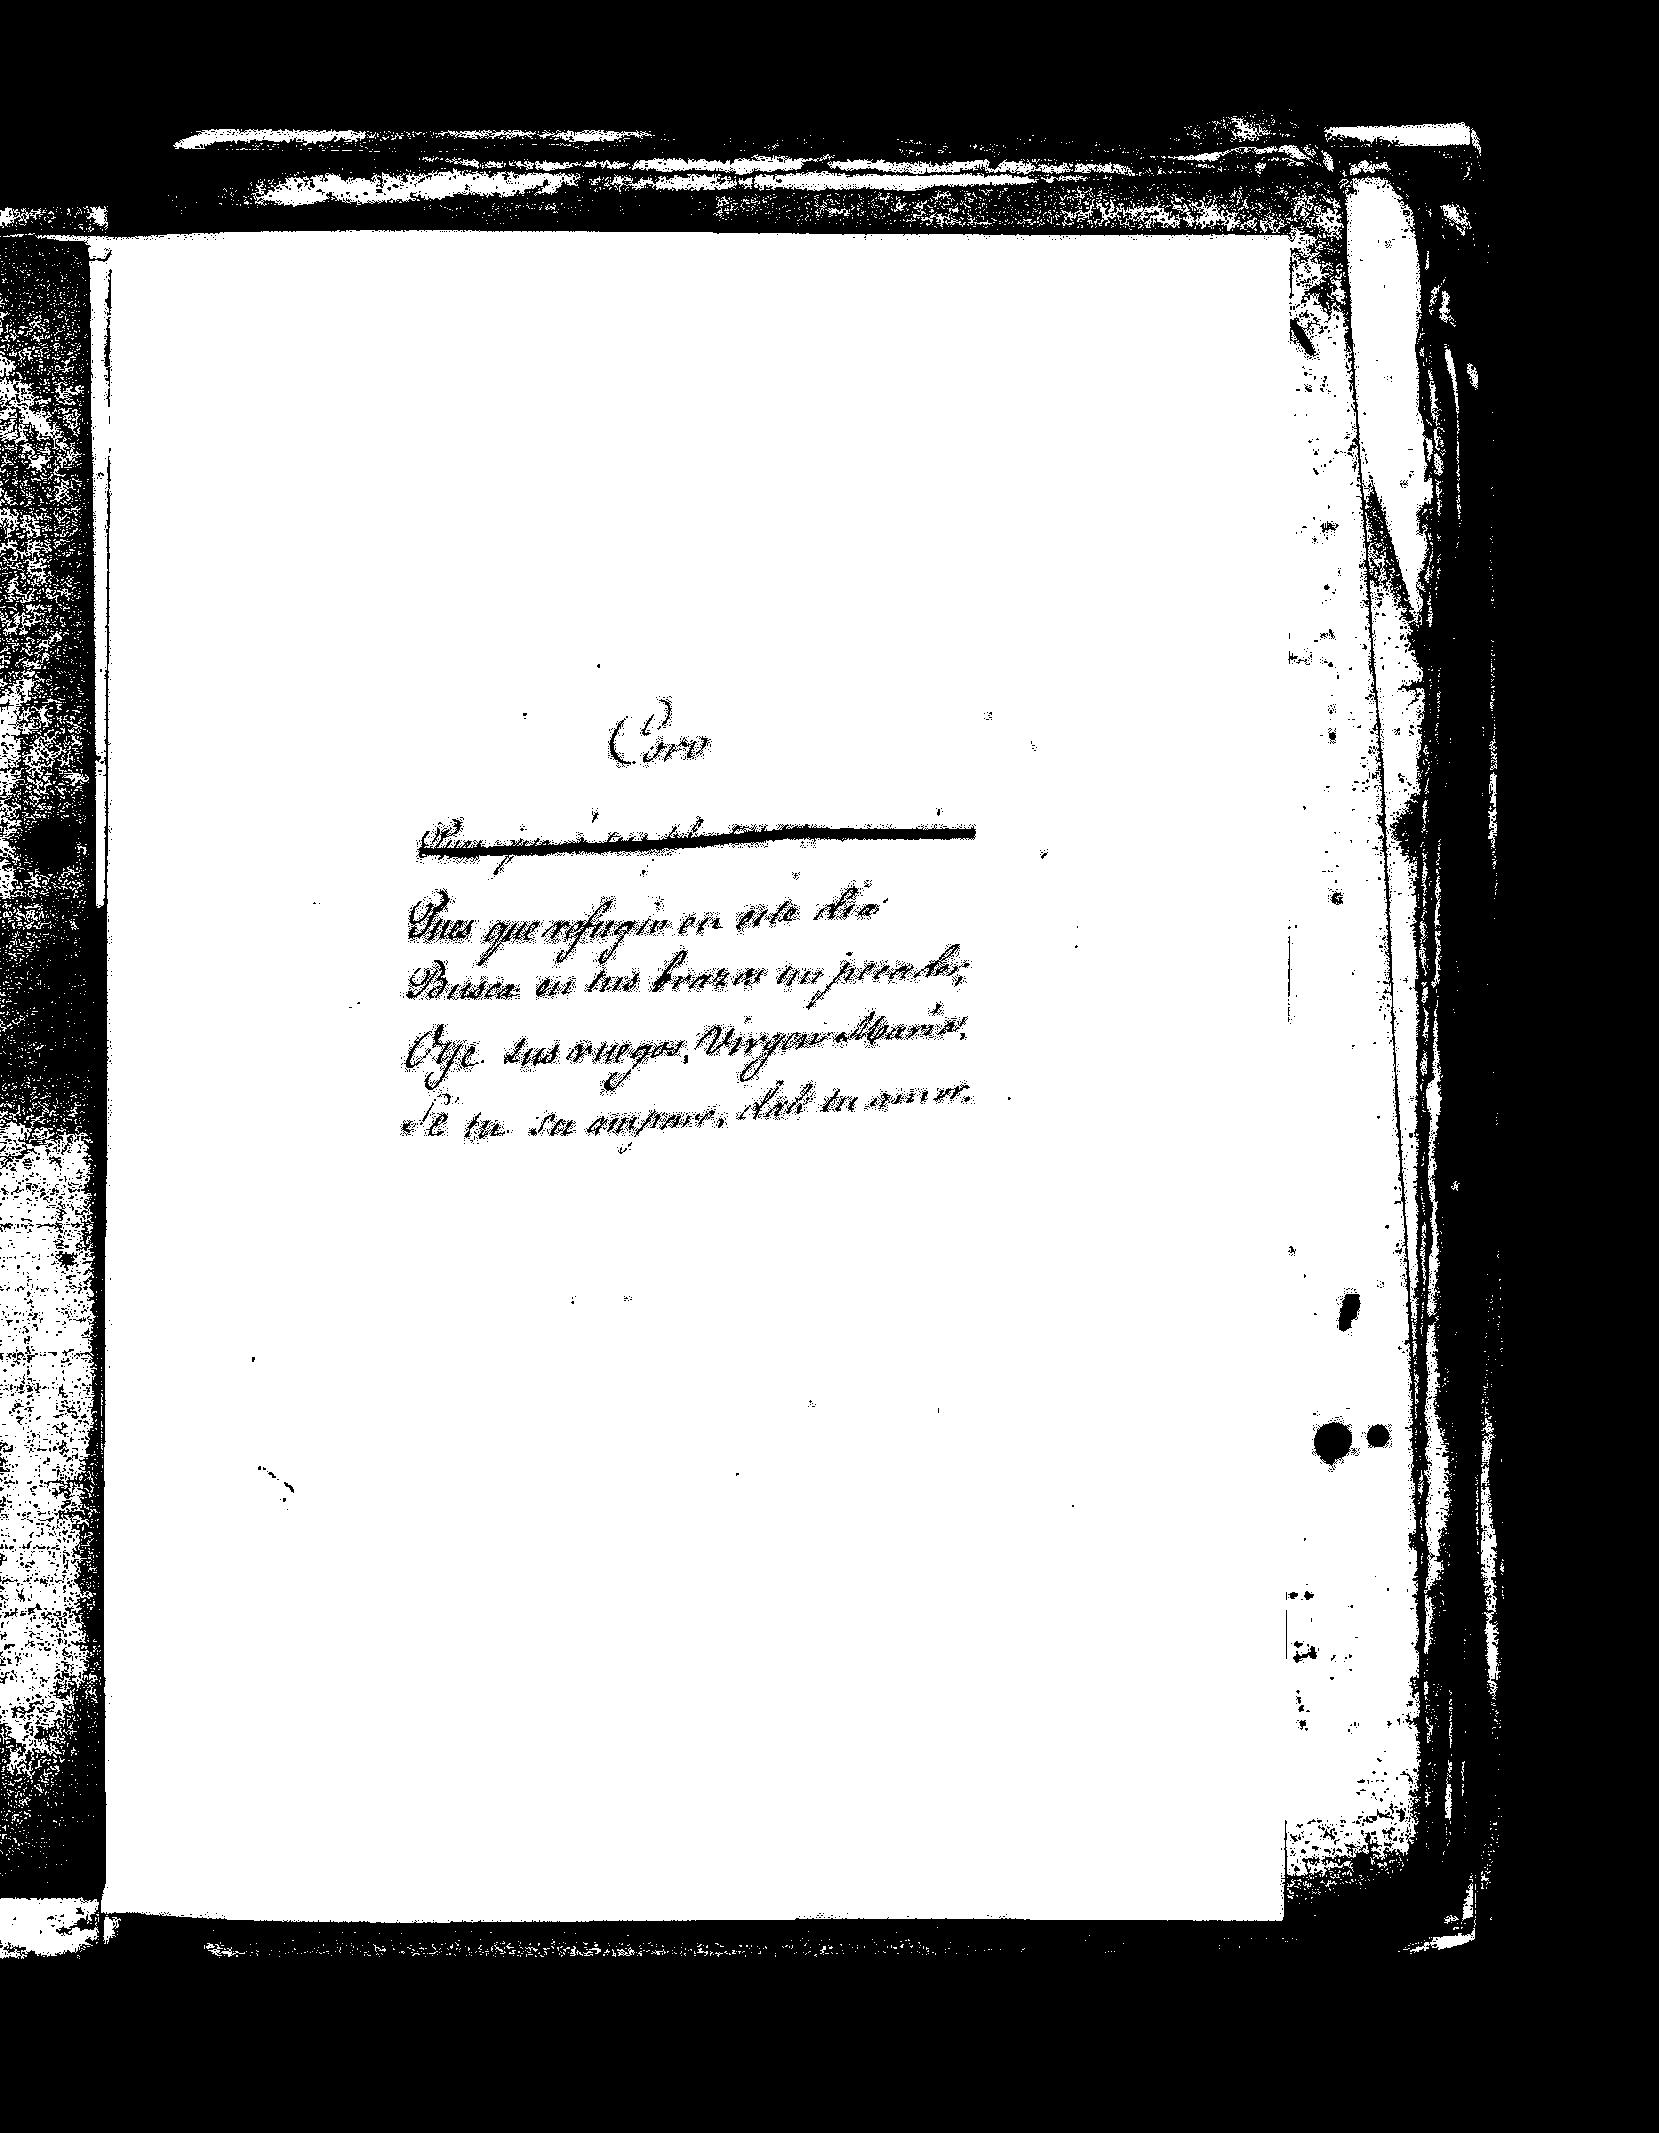 Coro
Pues que refugio en este dia
Busca en tus brazos un pecador,
Oye sus ruegos, Virgen Maria,
Sé tu su amparo, dale tu amor.